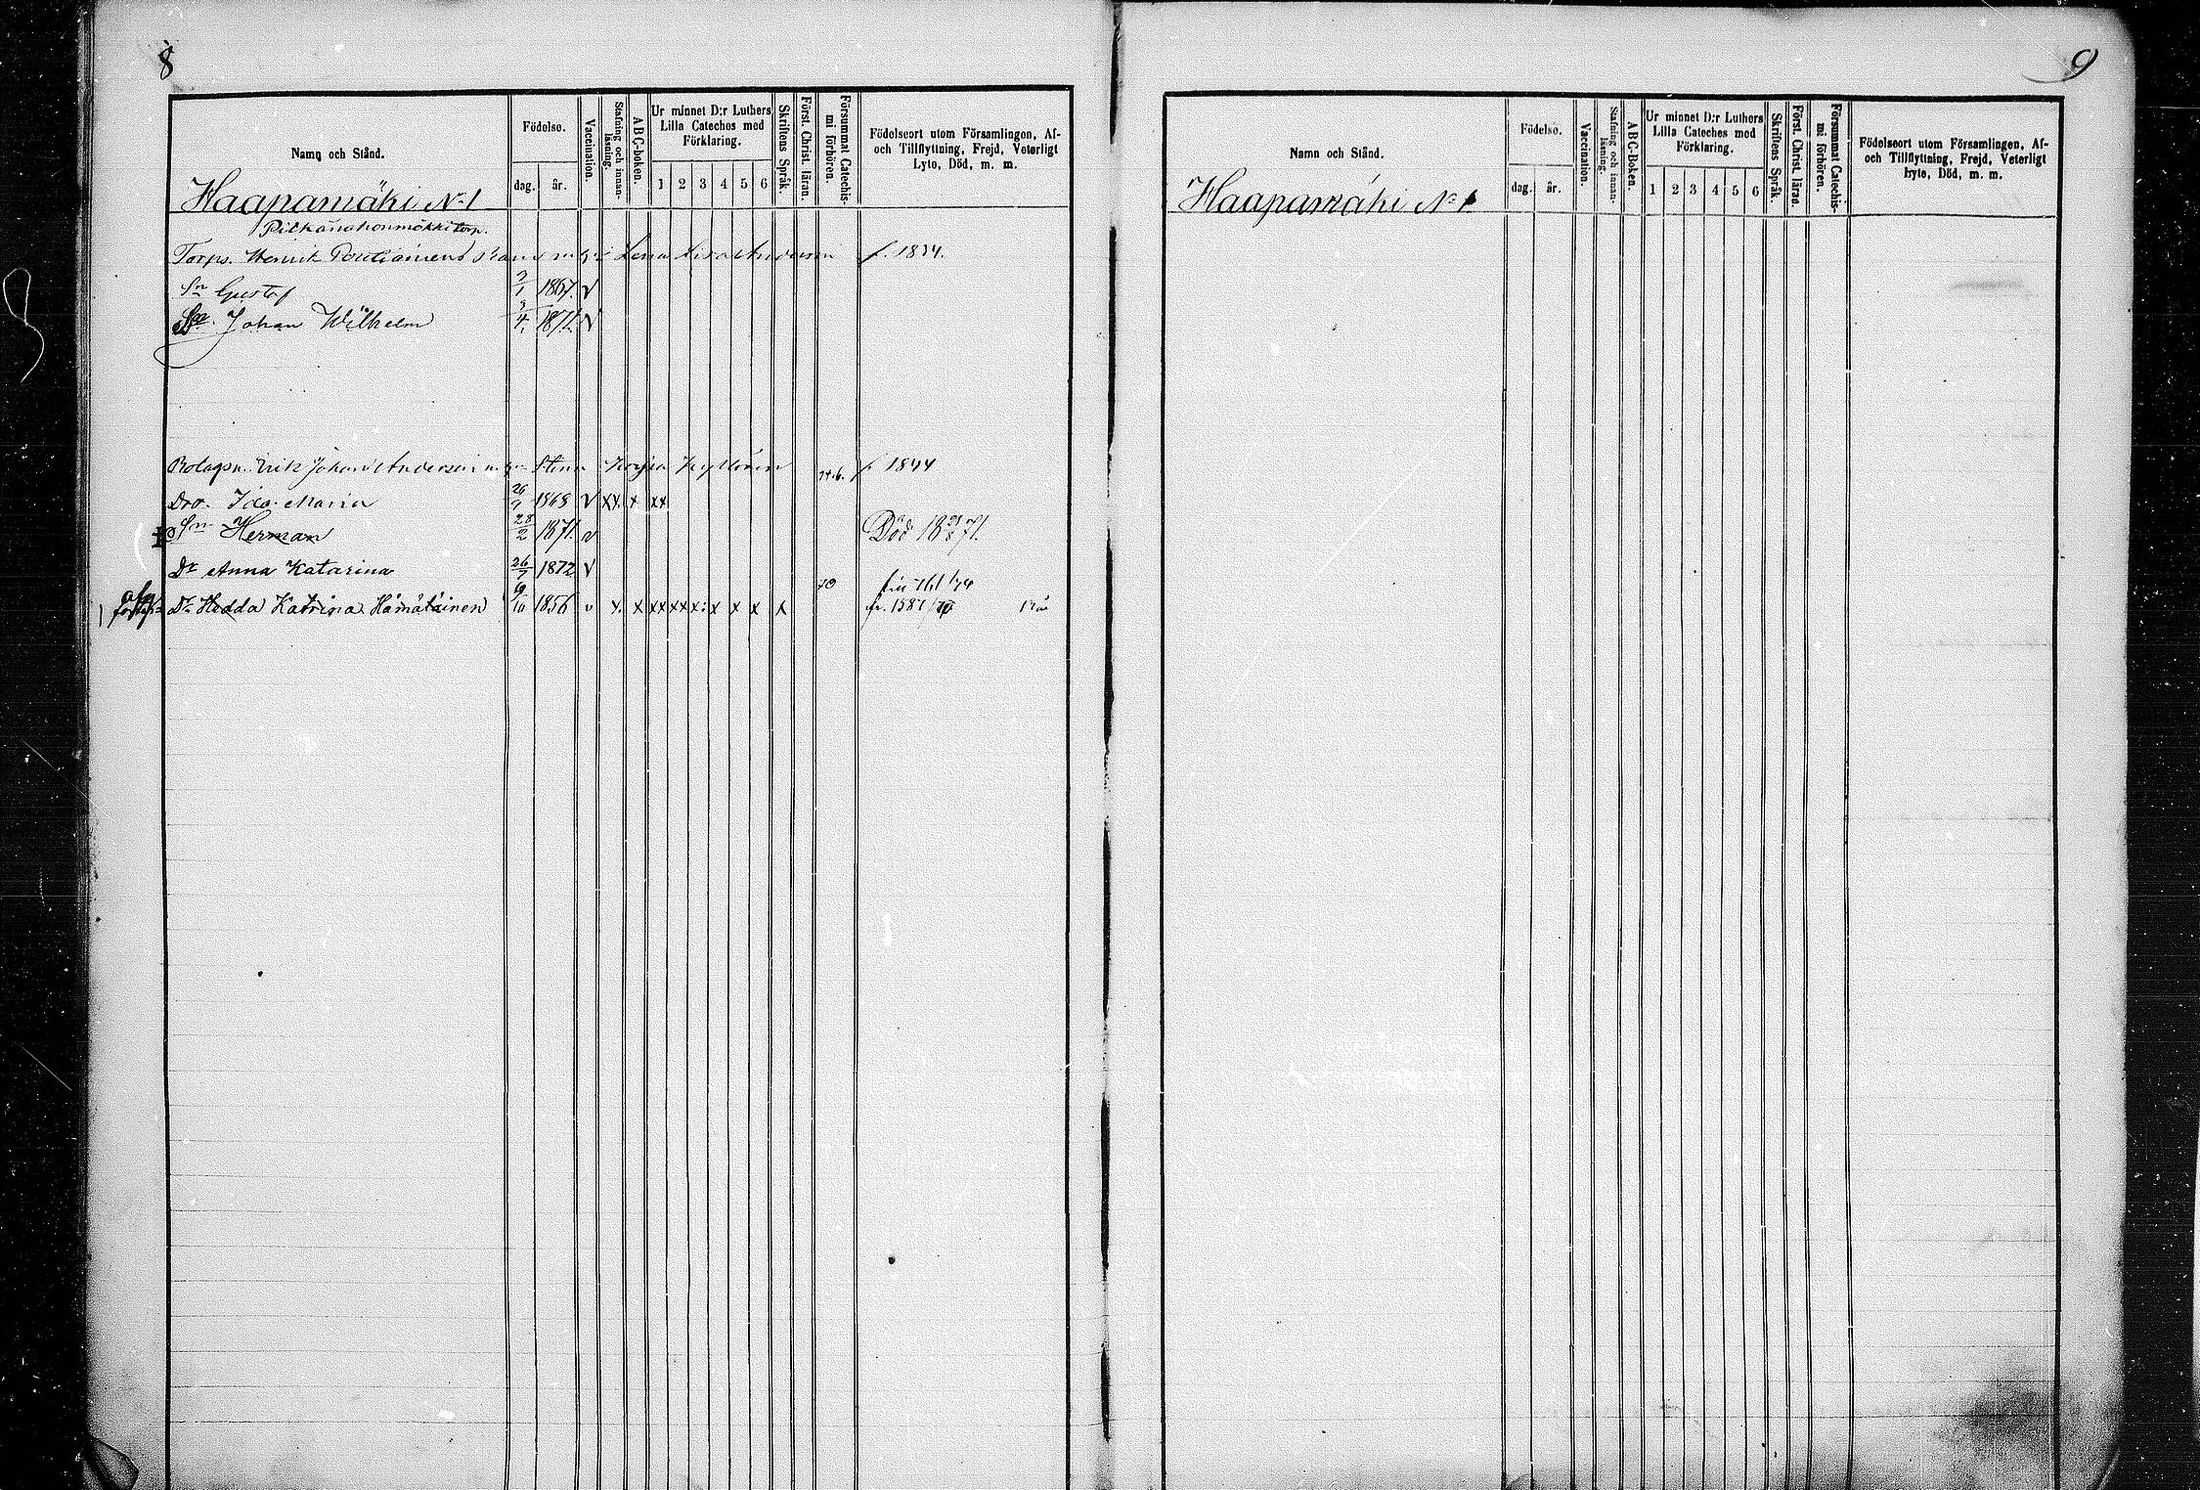 8
Namn och Stånd.
Födelse.
dag. år.
Vaccination.
Stafning och innan-
läsning.
ABC-boken.
Ur minnet D:r Luthers
Lilla Cateches med
Förklaring.
1 2 3 4 5 6
Skriftens Språk.
Först. Christ. läran.
Försummat Catechis-
mi förhören.
Födelseort utom Församlingen, Af-
och Tillflyttning, Frejd, Veterligt
Lyte, Död, m. m.
Haapamäki No 1
Torps. Henrik Lena Lisa Andersin f. 1834.
Sn Gustaf 2/1 1867. v
Johan Wilhelm 3/4 1871. v
Bolagsn. Erik Johan Andersin Stina 74.6. f 1844
Dro. Ida Maria 26/9 1868 v xx x xx
Sn Herman 28/2 1871. v Död 18 21/8 71.
Dr Anna Katarina 26/7 1872 v
Dr. Hedda Katrina Hämäläinen 9/10 1856 v x. x xx xx x: x x x x 70 fr. 1587/70
9
Namn och Stånd.
Födelse.
dag. år.
Vaccination.
Stafning och innan-
läsning.
ABC-Boken.
Ur minnet D:r Luthers
Lilla Cateches med
Förklaring.
1 2 3 4 5 6
Skriftens Språk.
Först. Christ. läran.
Försummat Catechis-
mi förhören.
Födelseort utom Församlingen, Af-
och Tillflyttning, Frejd, Veterligt
Lyte, Död, m. m.
Haapamäki No 1